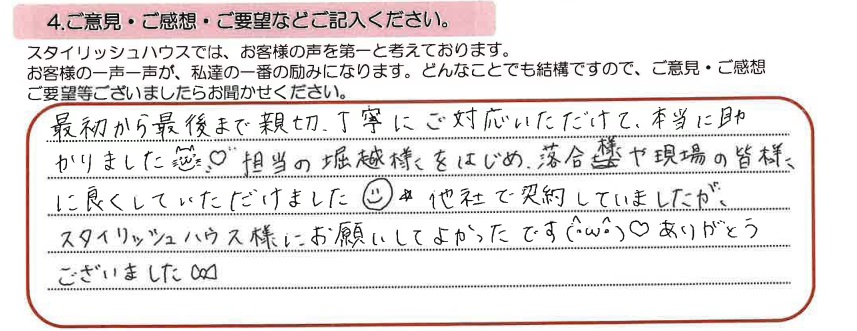 4.ご意見・ご感想・ご要望などご記入ください。
スタイリッシュハウスでは、お客様の声を第一と考えております。
お客様の一声一声が、私達の一番の励みになります。どんなことでも結構ですので、ご意見・ご感想
ご要望等ございましたらお聞かせください。
最初から最後まで親切、丁寧にご対応いただけて、本当に助
かりました♡担当の堀越様をはじめ、落合様や現場の皆様に
に良くしていただけました☺☆他社で契約していましたが、
スタイリッシュハウス様にお願いしてよかったです(^ω^)♡ありがとう
ございました